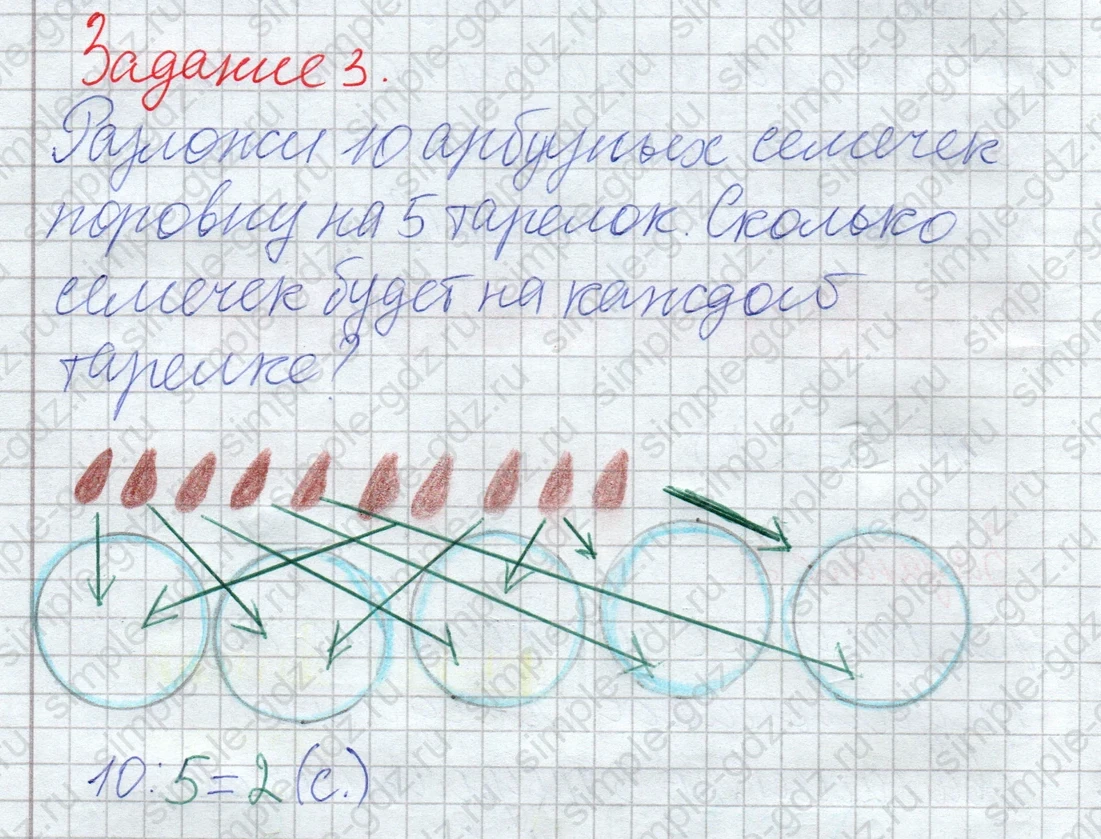 Задание 3.
Разложи 10 арбузных семечек
поровну на 5 тарелок. Сколько
семечек будет на каждой
тарелке?
10:5=2 (с.)
simple-gdz.ru